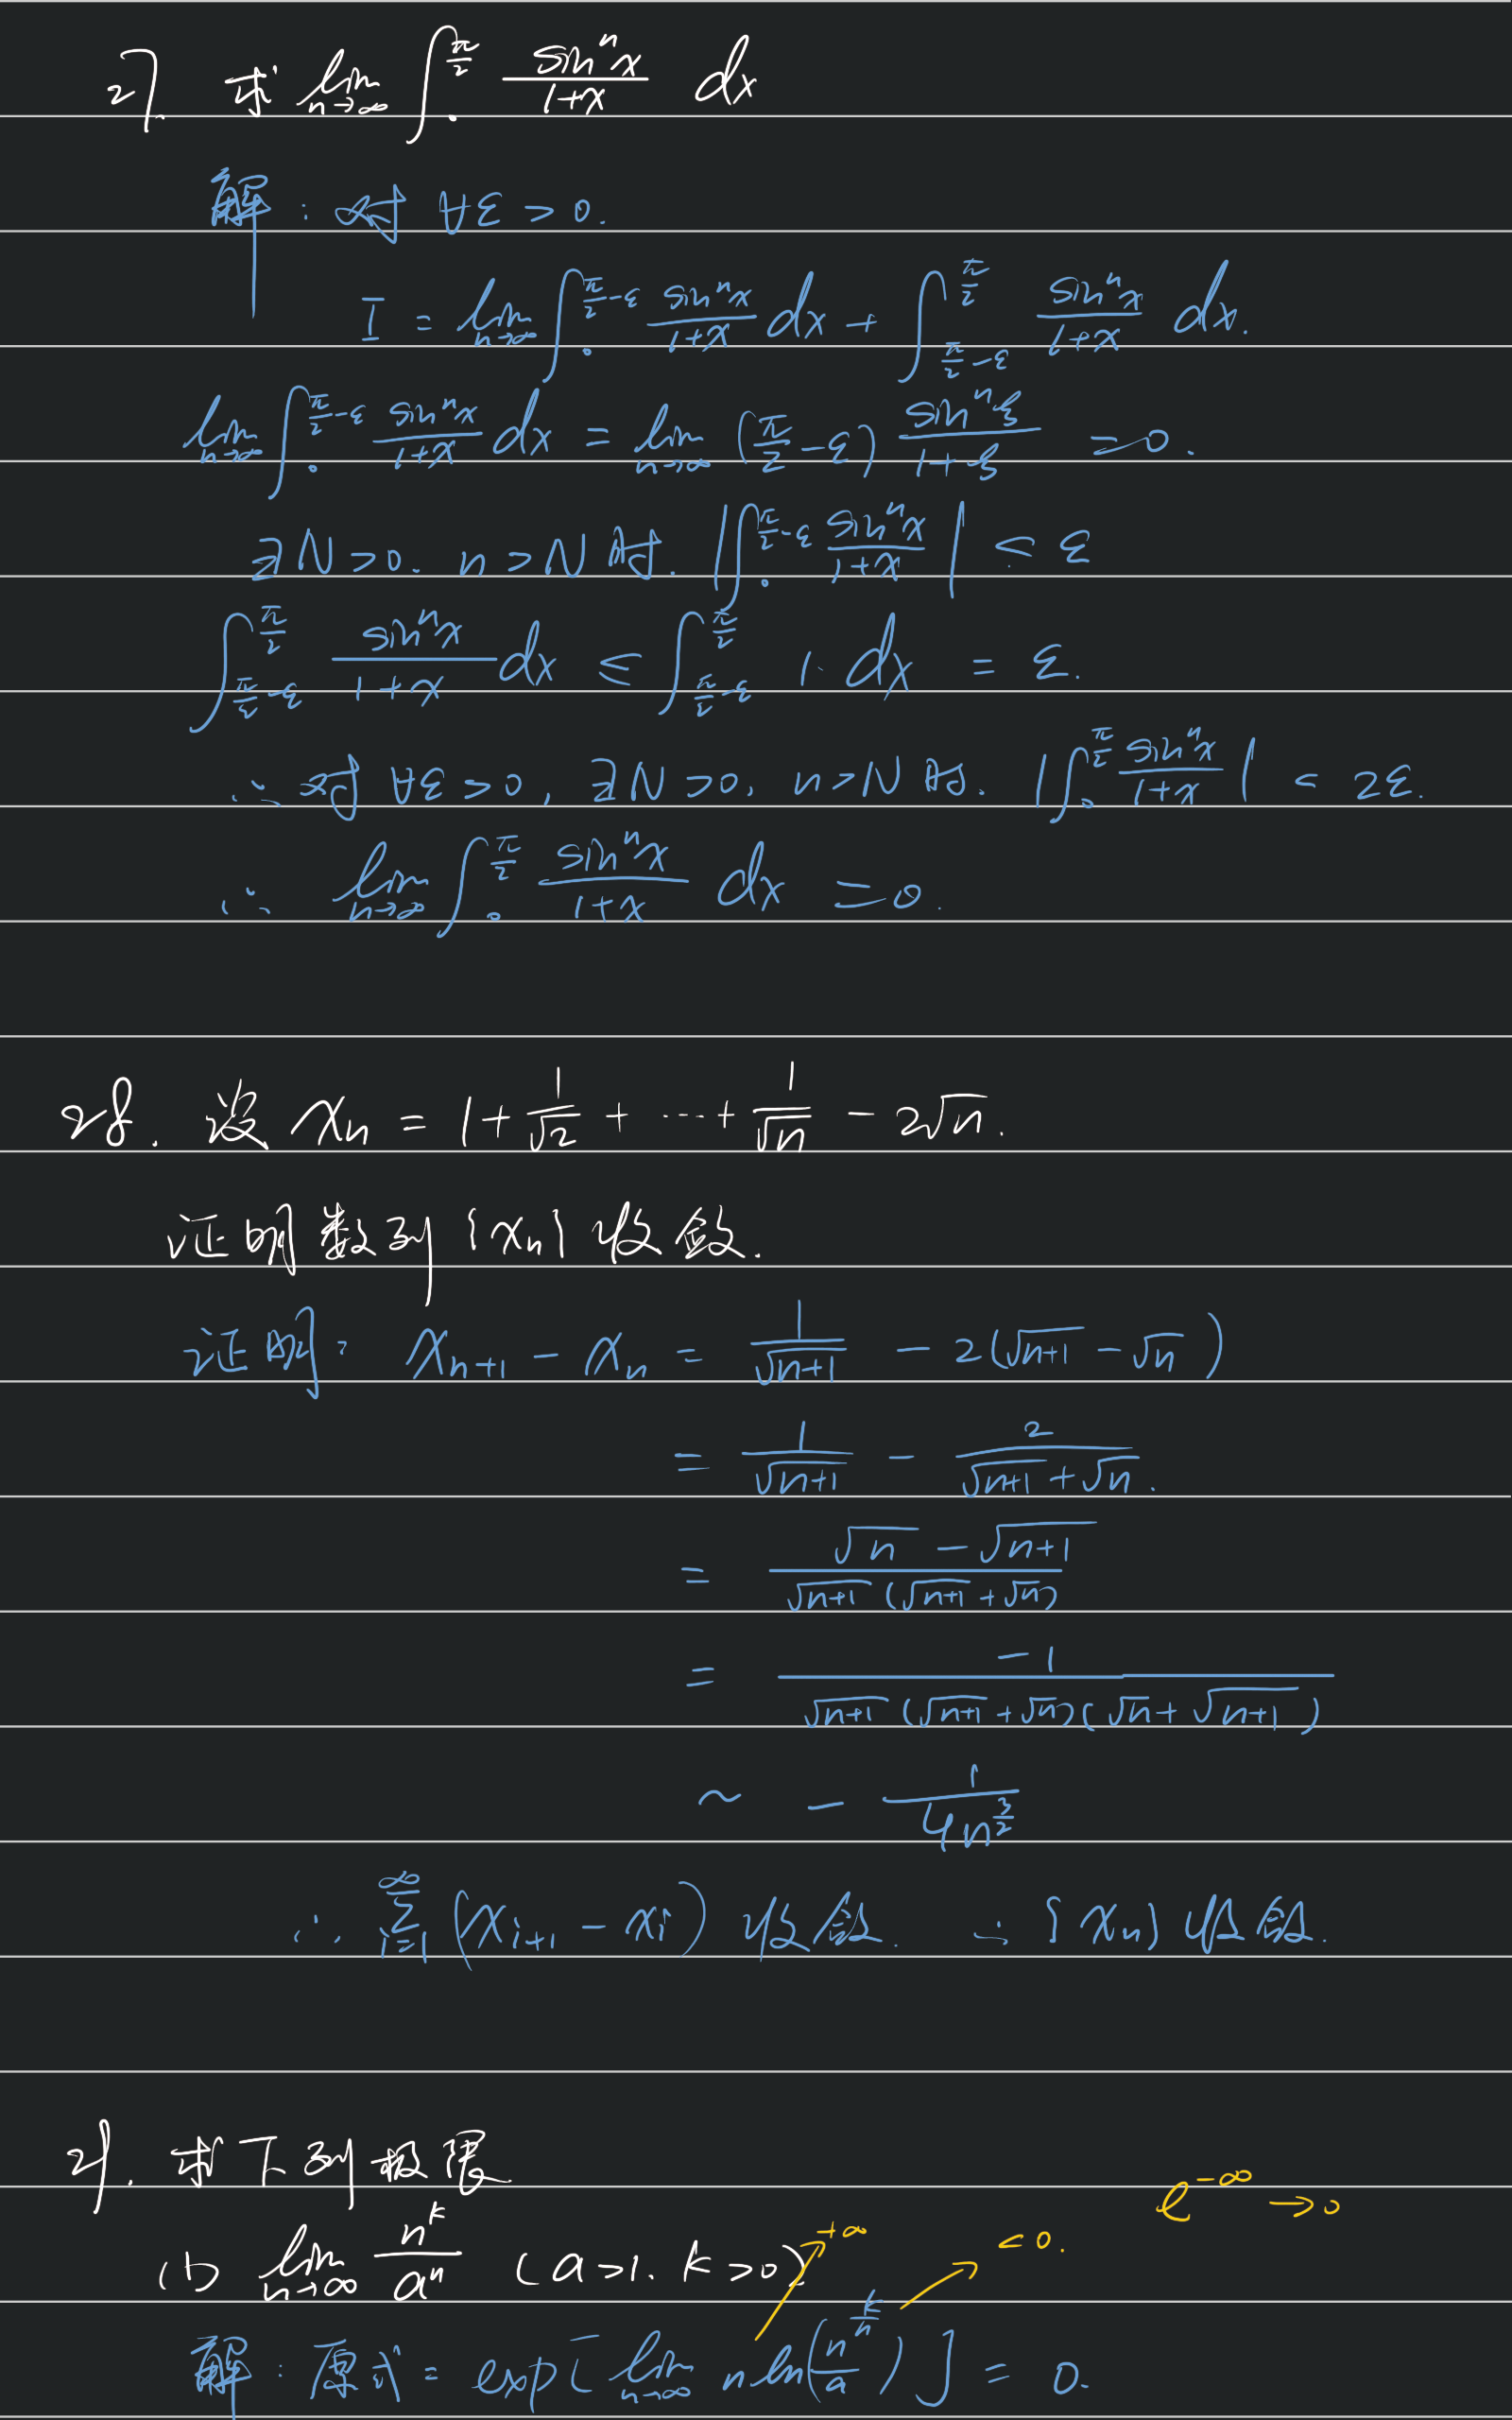 27. 求 lim_{n→∞} ∫_0^{π/2} sin^n x / (1+x) dx
解：对 ∀ε > 0.
I = lim_{n→∞} ∫_0^{π/2-ε} sin^n x / (1+x) dx + ∫_{π/2-ε}^{π/2} sin^n x / (1+x) dx.
lim_{n→∞} ∫_0^{π/2-ε} sin^n x / (1+x) dx = lim_{n→∞} (π/2-ε) sin^n ξ / (1+ξ) = 0.
∃N>0. n>N时. |∫_0^{π/2-ε} sin^n x / (1+x)| < ε
∫_{π/2-ε}^{π/2} sin^n x / (1+x) dx ≤ ∫_{π/2-ε}^{π/2} 1·dx = ε.
∴ 对 ∀ε>0, ∃N>0, n>N时. |∫_0^{π/2} sin^n x / (1+x)| < 2ε.
∴ lim_{n→∞} ∫_0^{π/2} sin^n x / (1+x) dx = 0.
28. 设 x_n = 1 + 1/√2 + ··· + 1/√n - 2√n.
证明数列{x_n}收敛.
证明: x_{n+1} - x_n = 1/√(n+1) - 2(√(n+1) - √n)
= 1/√(n+1) - 2/(√(n+1) + √n).
= (√n - √(n+1)) / (√(n+1) (√(n+1) + √n))
= -1 / (√(n+1) (√(n+1) + √n)(√n + √(n+1)))
~ - 1/(4n^{3/2})
∴ ∑_{i=1}^∞ (x_{i+1} - x_i) 收敛. ∴ {x_n} 收敛.
29. 求下列极限
e^{-∞} → 0
(1) lim_{n→∞} n^k / a^n (a>1. k>0) +∞ <0.
解：原式 = exp[lim_{n→∞} n ln(n^{k/n} / a)] = 0.